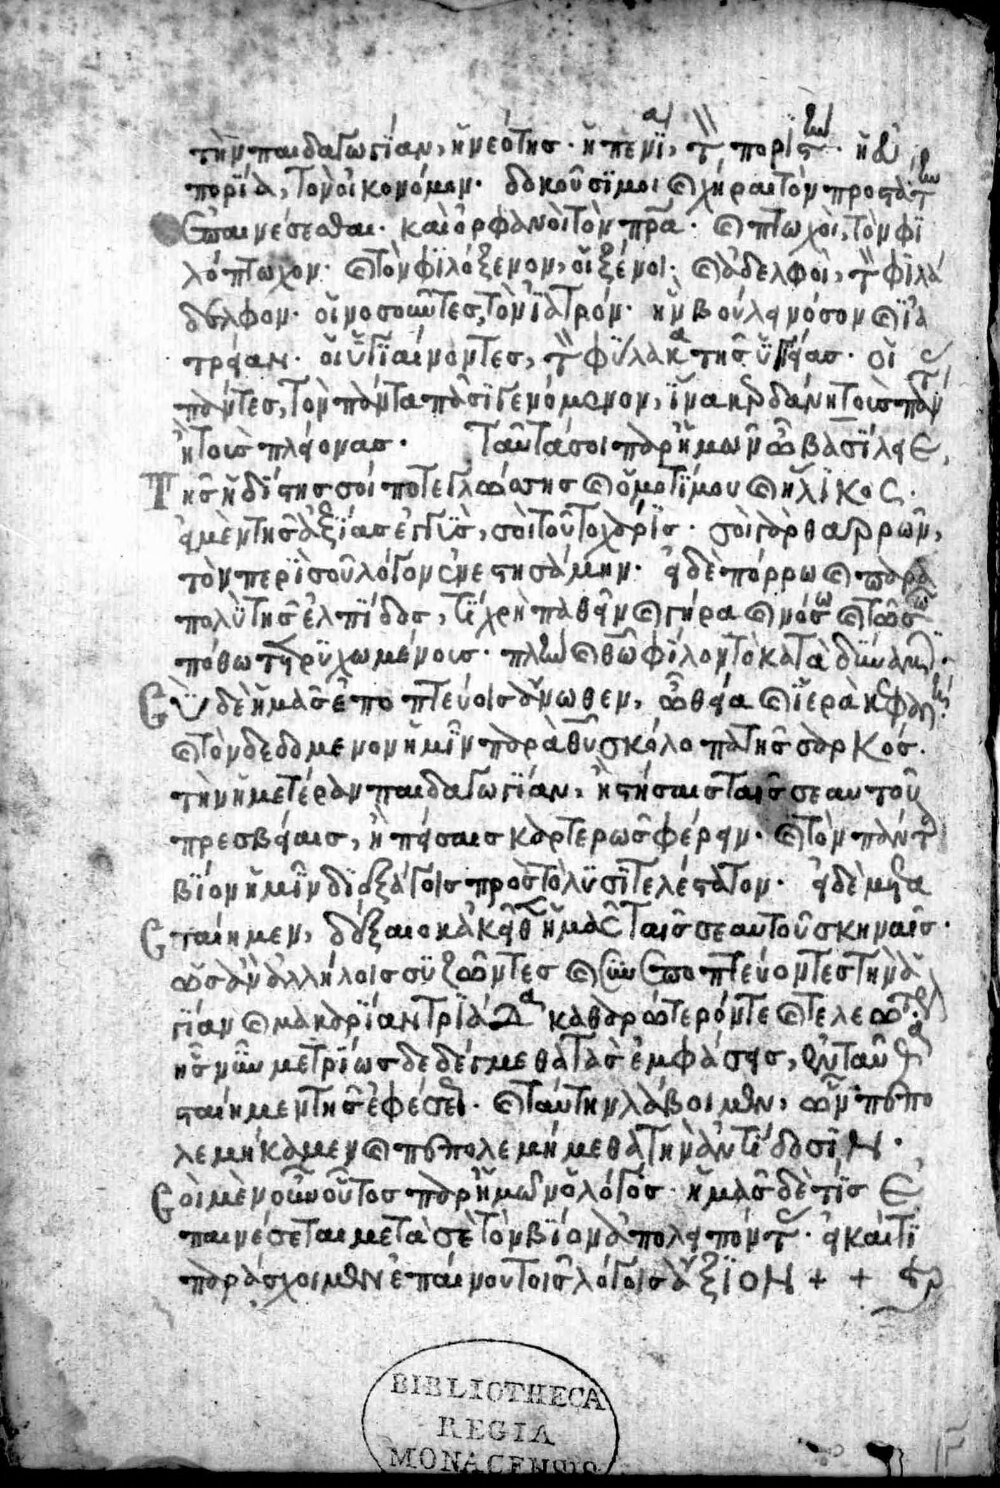 τὴν παιδαγωγίαν, ἡ νεότης· ἡ πενία, τὸν ποριστὴν· ἡ εὐ
πορία, τὸν οἰκονόμον· δοκοῦσί μοι καὶ χῆραι τὸν προστάτην
ἐπαινέσεσθαι· καὶ ὀρφανοὶ τὸν πρα· καὶ πτωχοὶ, τὸν φι
λόπτωχον· καὶ τὸν φιλόξενον, οἱ ξένοι· καὶ ἀδελφοὶ, τὸν φιλά
δελφον· οἱ νοσοῦντες, τὸν ἰατρόν· ἣν βούλει νόσον καὶ ἰα
τρείαν· οἱ ὑγιαίνοντες, τὸν φύλακα τῆς ὑγείας· οἱ
πάντες, τὸν πάντα πᾶσι γενόμενον, ἵνα κερδάνῃ τοὺς πάντας
ἢ τοὺς πλείονας· Ταῦτά σοι παρ' ἡμῶν ὦ Βασίλειε,
τῆς ἡδίστης σοί ποτε γλώσσης καὶ ὁμοτίμου καὶ ἥλικος·
εἰ μὲν τῆς ἀξίας ἐγγὺς, σοὶ τοῦτο χάρις· σοὶ γὰρ θαρρῶν,
τὸν περὶ σοῦ λόγον ἐνεστησάμην· εἰ δὲ πόρρω καὶ παρὰ
πολὺ τῆς ἐλπίδος, τί χρὴ παθεῖν καὶ γήρᾳ καὶ νόσῳ καὶ τῷ σῷ
πόθῳ τετρυχωμένους· πλὴν καὶ θῶ φίλον τὸ κατὰ δύναμιν·
Σὺ δὲ ἡμᾶς ἐποπτεύοις ἄνωθεν, ὦ θεία καὶ ἱερὰ κεφαλὴ·
καὶ τὸν δεδομένον ἡμῖν παρὰ θυ σκόλοπα τῆς σαρκός·
τὴν ἡμετέραν παιδαγωγίαν, ἢ στήσαις ταῖς σεαυτοῦ
πρεσβείαις, ἢ πείσαις καρτερῶς φέρειν· καὶ τὸν πάντα
βίον ἡμῖν διεξάγοις πρὸς τὸ λυσιτελέστατον· εἰ δὲ μετα
σταίημεν, δέξαιο κἀκεῖθεν ἡμᾶς ταῖς σεαυτοῦ σκηναῖς·
ὡς ἂν ἀλλήλοις συζῶντες καὶ συνεποπτεύοντες τὴν ἁ
γίαν καὶ μακαρίαν τριάδα καθαρώτερόν τε καὶ τελεώτερον
ἧς νῦν μετρίως δεδέγμεθα τὰς ἐμφάσεις, ἐνταῦθα
σταίημεν τῆς ἐφέσεως· καὶ ταύτην λάβοιμεν, ὧν πεπο
λεμήκαμεν καὶ πεπολεμήμεθα τὴν ἀντίδοσιν·
Σοὶ μὲν οὖν οὗτος παρ' ἡμῶν ὁ λόγος· ἡμᾶς δὲ τίς ἐ
παινέσεται μετὰ σὲ τὸν βίον ἀπολείποντας· εἰ καί τι
παράσχοιμεν ἐπαίνου τοῖς λόγοις ἄξιον + +
BIBLIOTHECA
REGIA
MONACENSIS